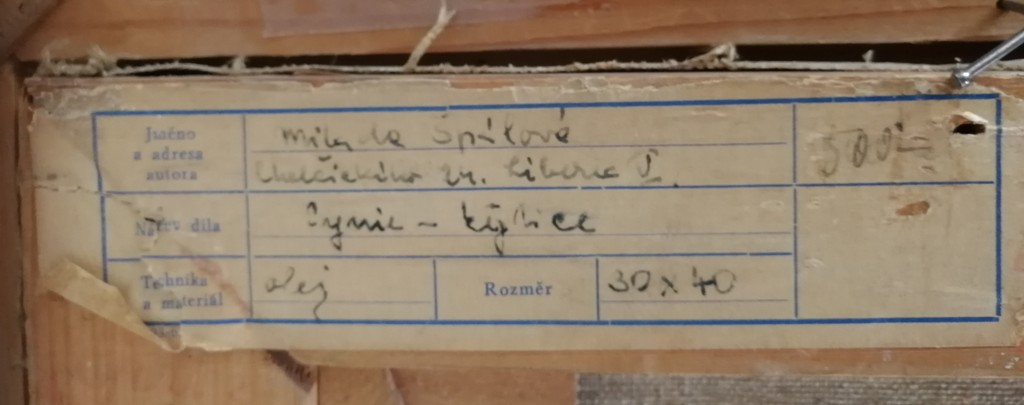 Jméno
a adresa
autora
Milada Špálová
Chelčického Liberec I.
500
Název díla
Cynie - kytice
Technika
a materiál
olej
Rozměr
30 x 40